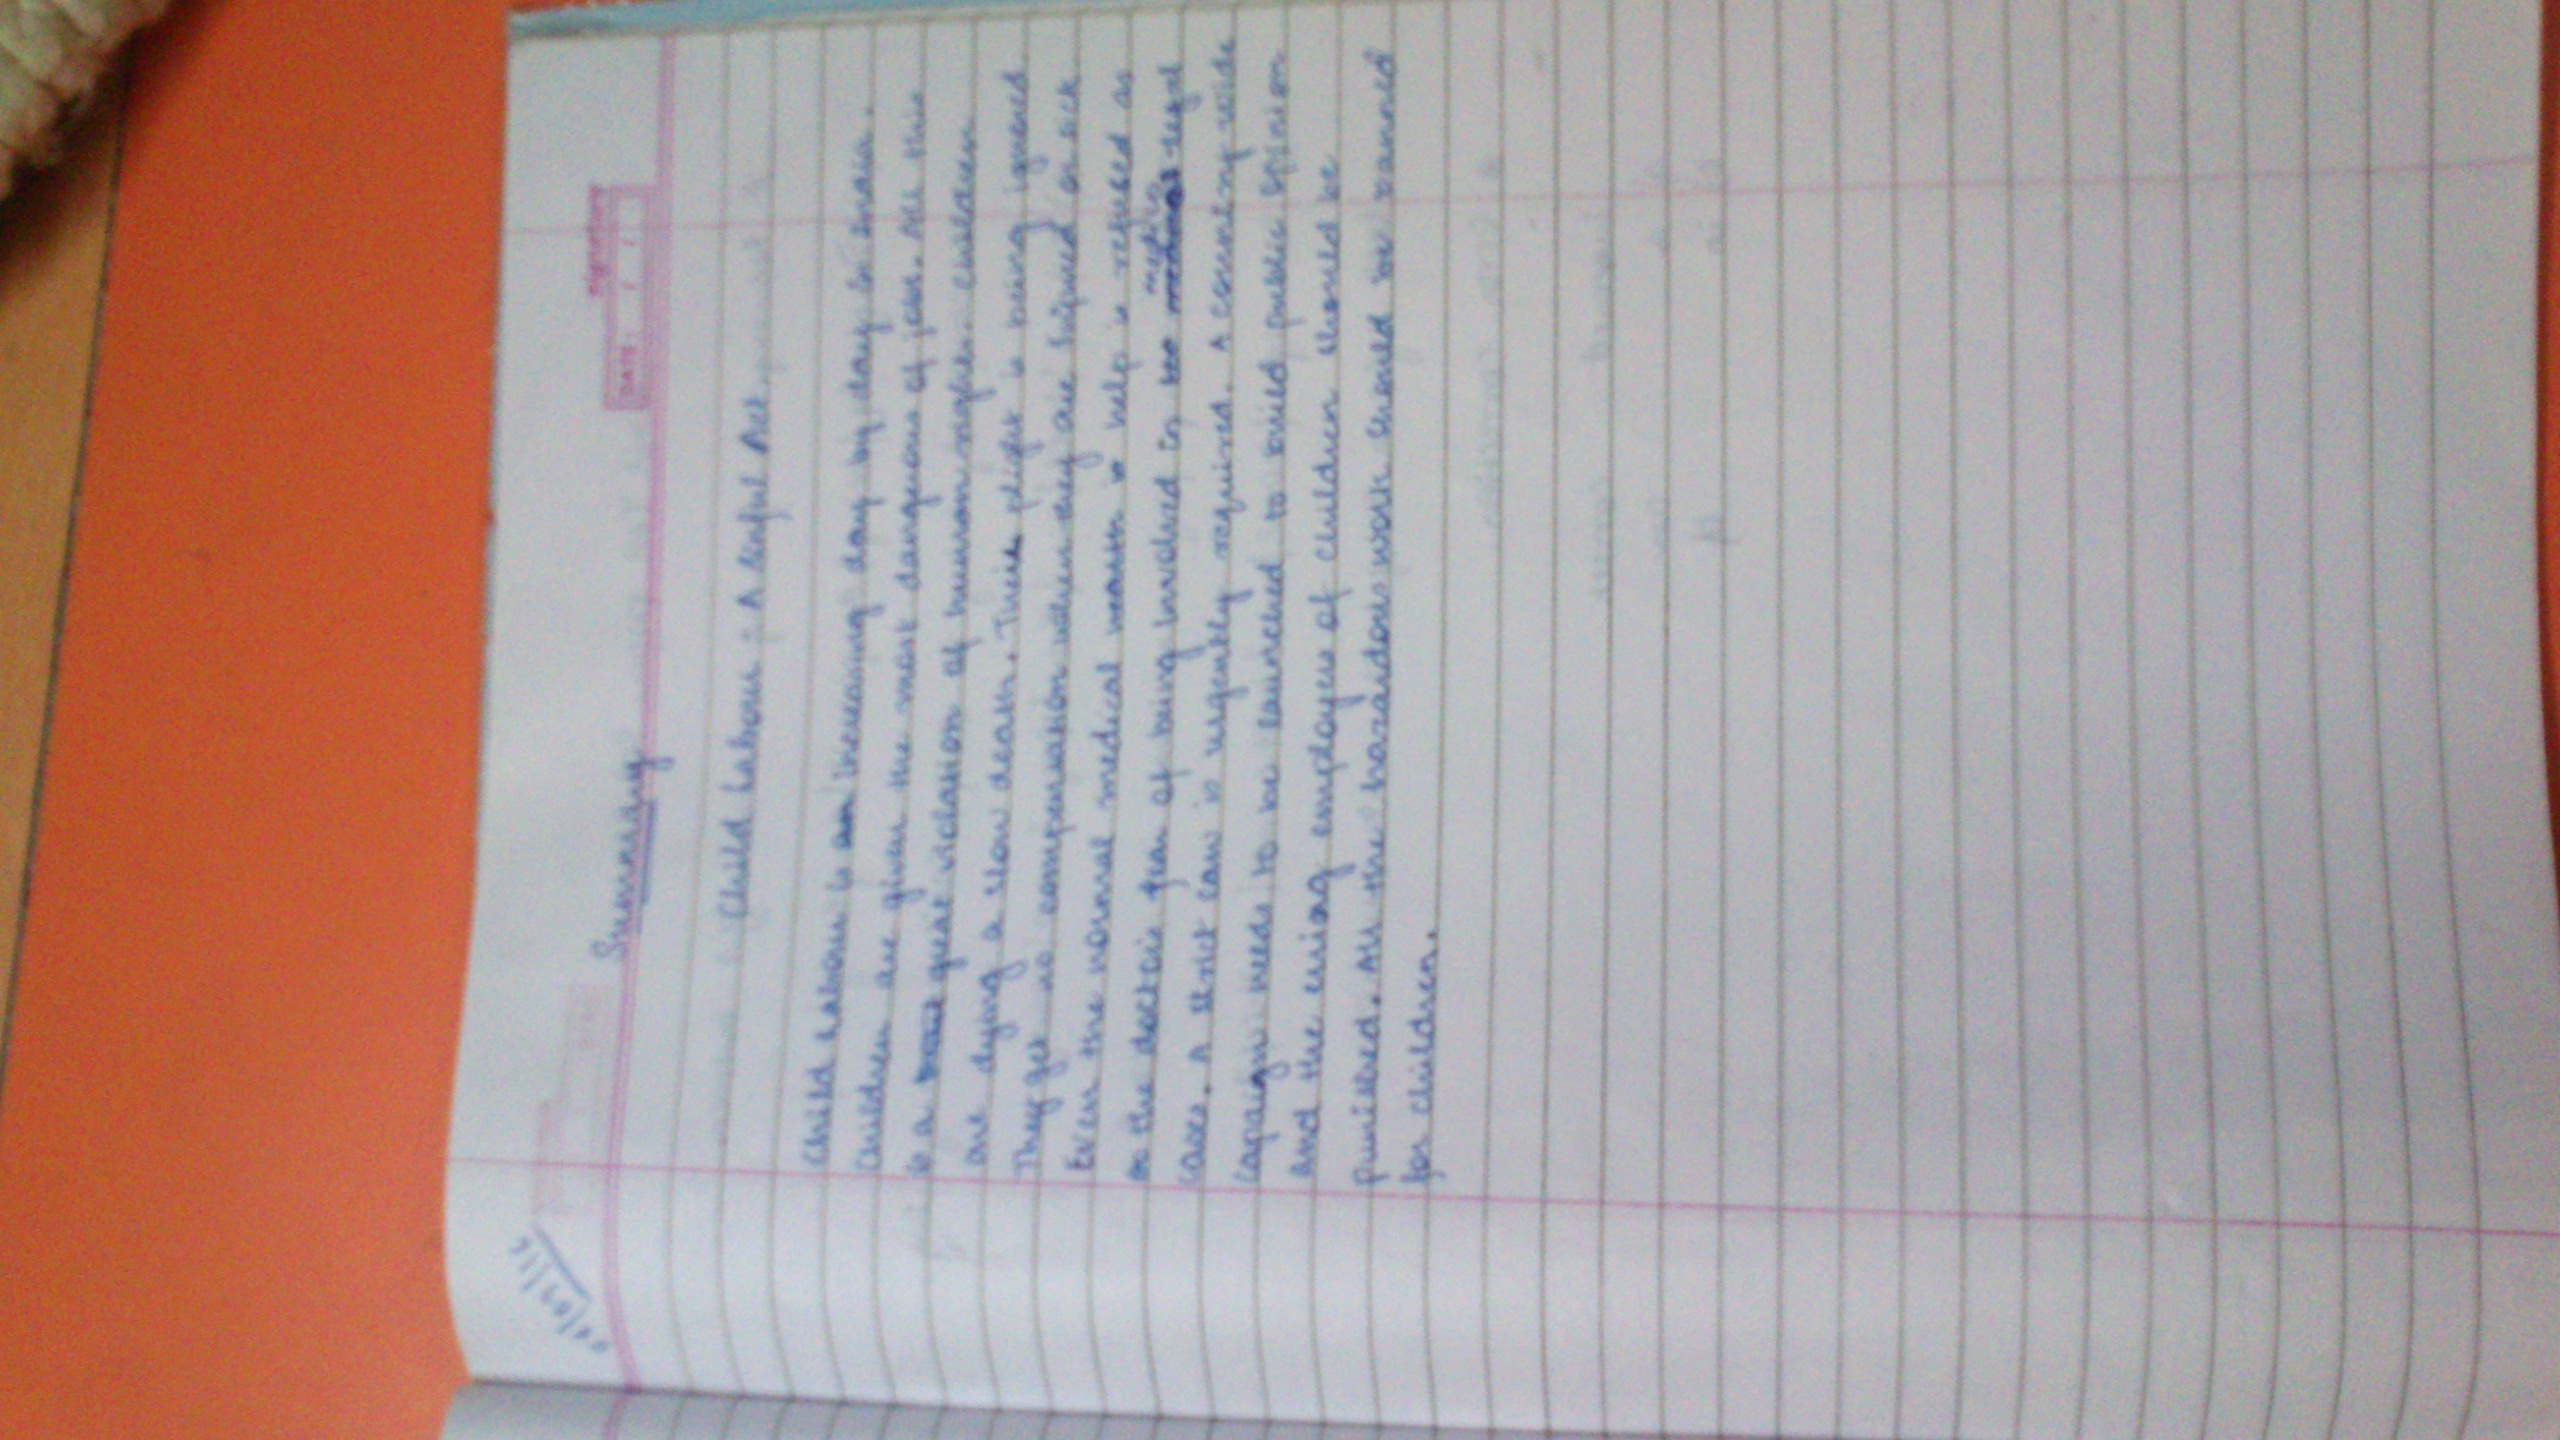 Summary
signature
DATE: / /
Child Labour : A Sinful Act
Child Labour is an increasing day by day in India.
Children are given the most dangerous of jobs. All this
is a great violation of human rights. Children
are dying a slow death. Their plight is being ignored.
They get no compensation when they are injured or sick
Even the normal medical health is help is refused as
the doctors fear of being involved in medico legal
cases. A strict law is urgently required. A country wide
capaign needs to be launched to build public opinion
and the erring employers of children should be
punished. All the hazardous work should be banned
for children.